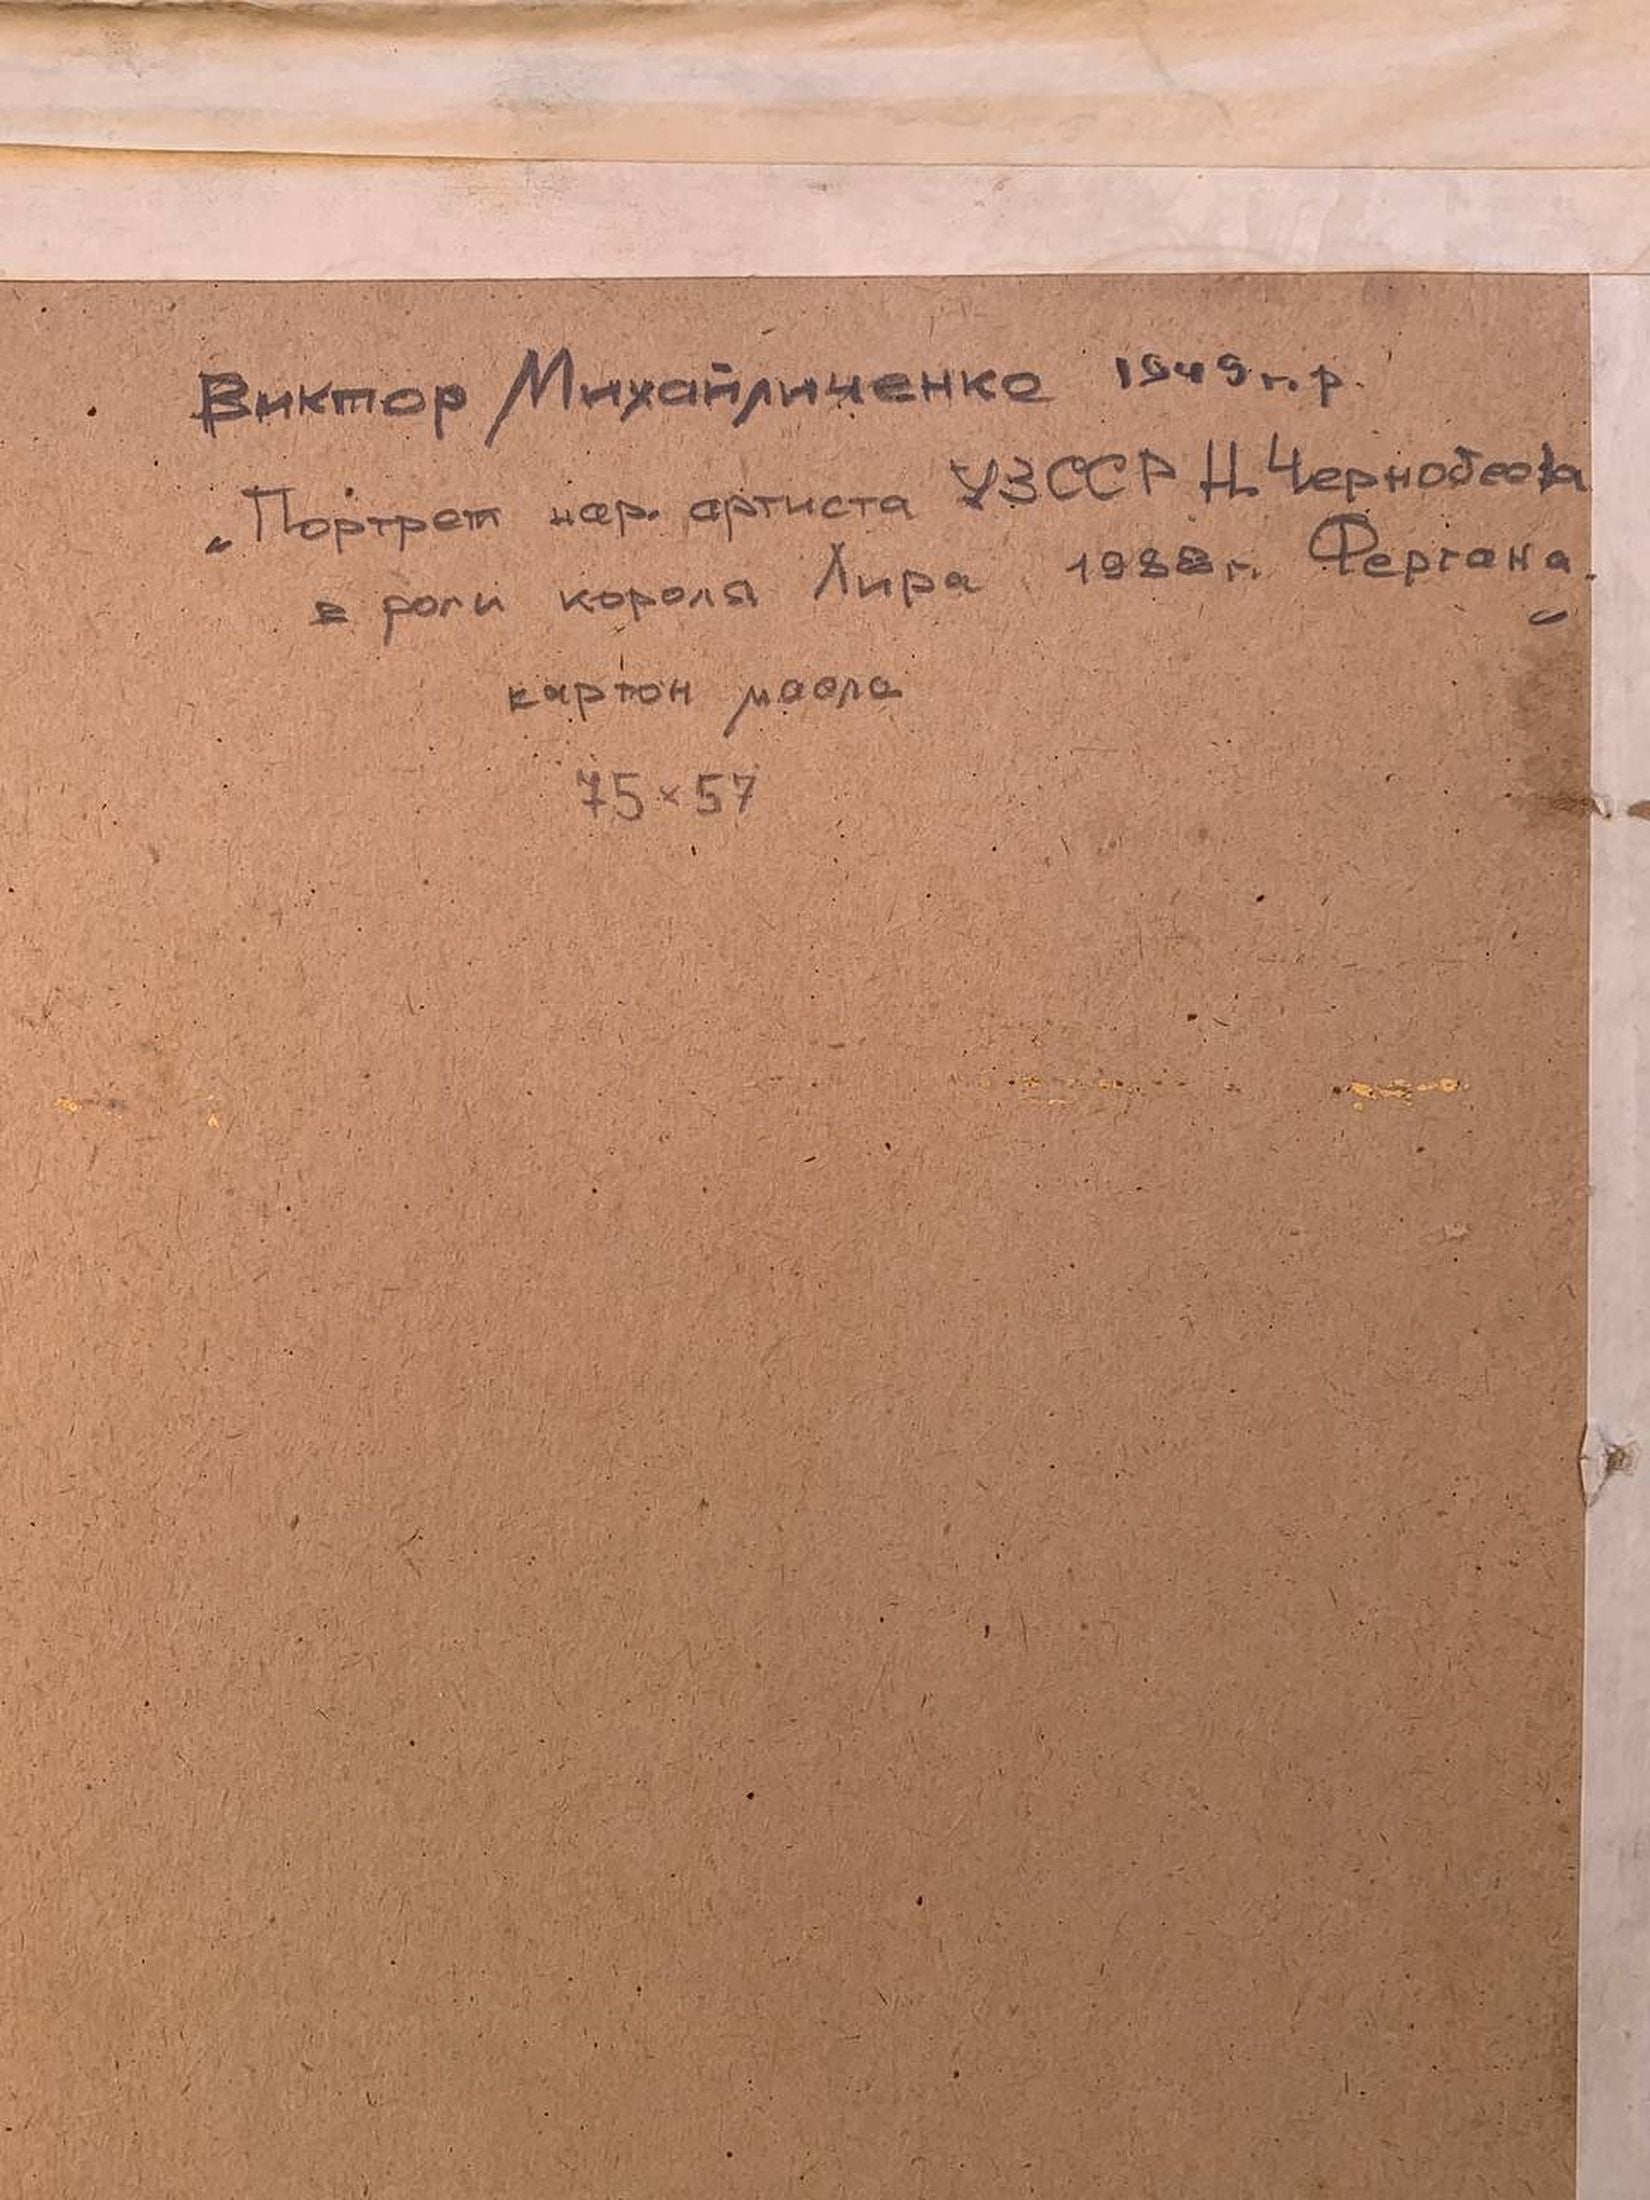 Виктор Михайличенко 1949 г.р.
„Портрет нар. артиста УзССР Н.
в роли короля Лира 1988 г. Фергана.“
картон масло
75×57